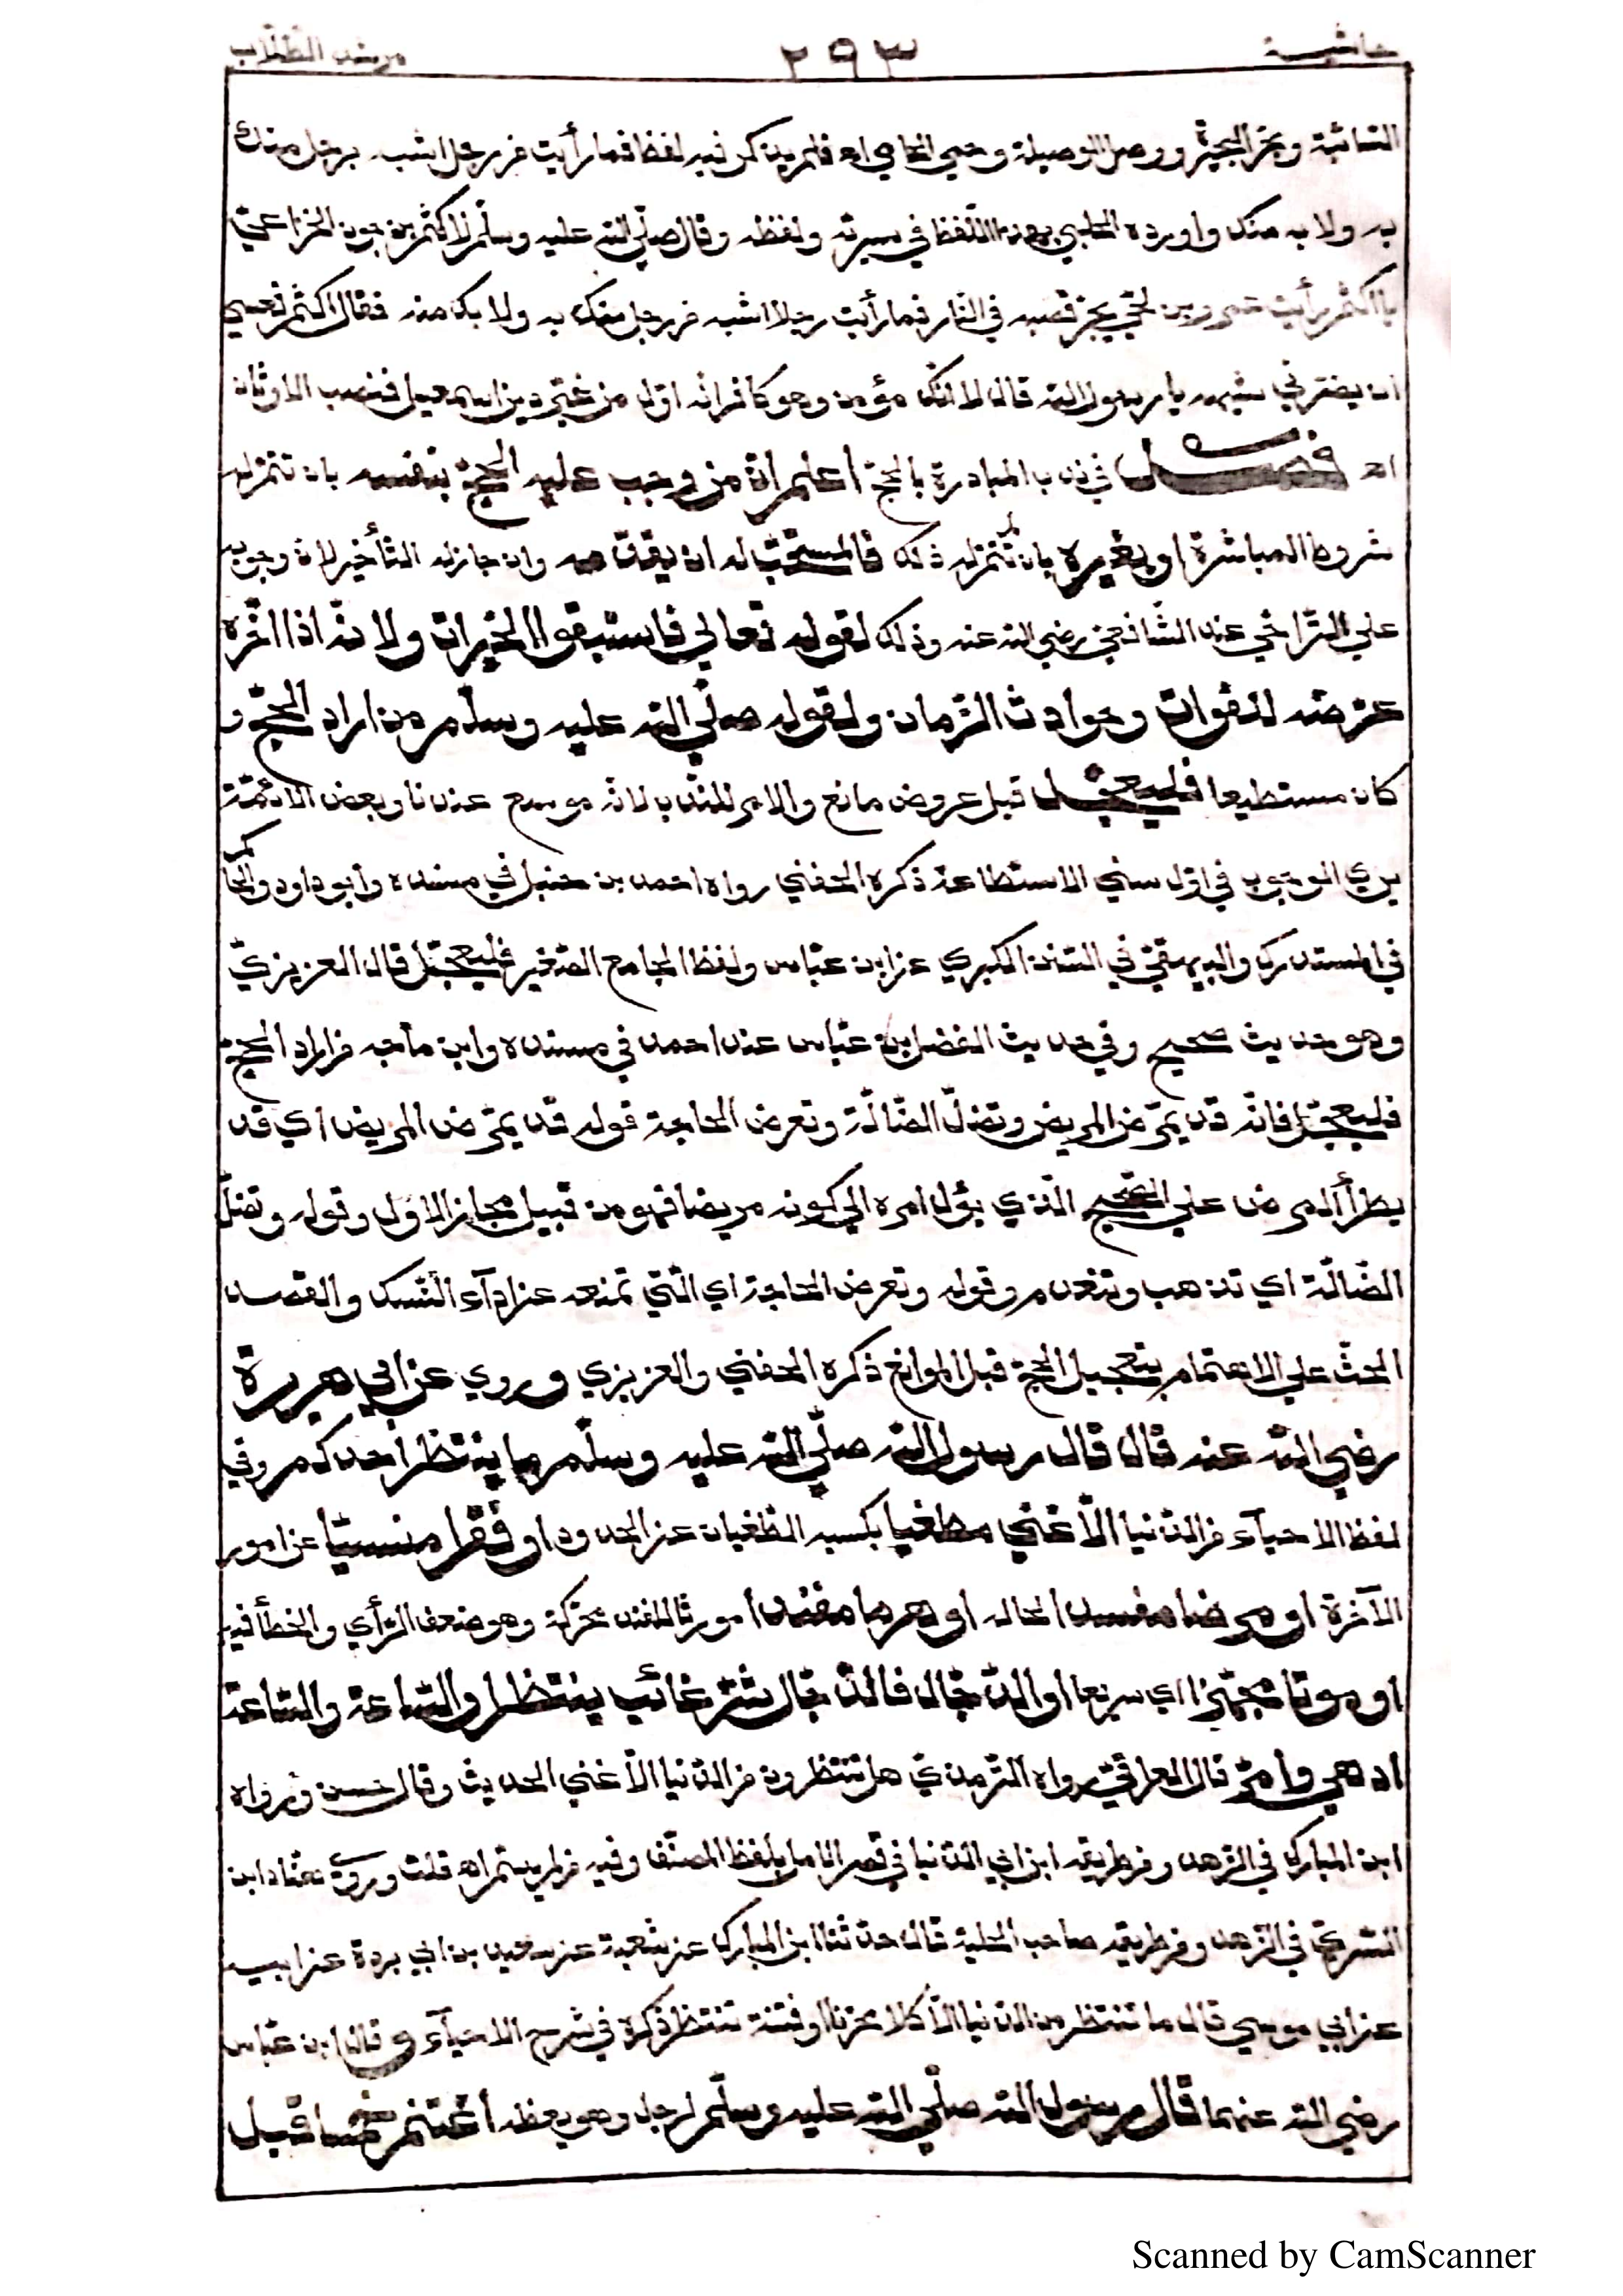 حاشية ٢٩٣ مرشد الطلاب
السائبة وبحّر البحيرة ووصل الوصيلة وحمى الحامي اه فلم يذكر فيه لفظ فما رأيت من رجل اشبه برجل منك
به ولا به منك واورده الحلبي بهذا اللّفظ في سيرته ولفظه وقال صلّى الله عليه وسلّم لاكثم بن جون الخزاعيّ
يا اكثم رأيت عمرو بن لحيّ يجرّ قصبه في النّار فما رأيت رجلا اشبه من رجل منك به ولا بك منه فقال اكثم فعسى
ان يضرّني شبهه يا رسول الله قال لا انّك مؤمن وهو كافر انّه اوّل من غيّر دين اسمعيل فنصب الاوثان
اه فصل في ندب المبادرة بالحجّ اعلم انّ من وجب عليه الحجّ بنفسه بان تتمّ له
شروط المباشرة او بغيره بان لم تتمّ له ذلك فالمستحبّ له ان يقدّمه وان جاز له التأخير لانّ وجوبه
على التّراخي عند الشّافعيّ رضي الله عنه وذلك لقوله تعالى فاستبقوا الخيرات ولانّه اذا اخّره
عرضه للفوات وحوادث الزّمان ولقوله صلّى الله عليه وسلّم من اراد الحجّ و
كان مستطيعا فليعجّل قبل عروض مانع والامر للنّدب لانّه موسع عندنا وبعض الائمّة
يرى الوجوب في اوّل سني الاستطاعة ذكره الحفني رواه احمد بن حنبل في مسنده وابو داود والحاكم
في المستدرك والبيهقيّ في السّنن الكبرى عن ابن عبّاس ولفظ الجامع الصّغير فليعجّل قال العزيزيّ
وهو حديث صحيح وفي حديث الفضل بن عبّاس عند احمد في مسنده وابن ماجه من اراد الحجّ
فليعجّل فانّه قد يمرض المريض وتضلّ الضّالّة وتعرض الحاجة قوله قد يمرض المريض اي قد
يطرأ المرض على الصّحيح الّذي يؤل امره الى كونه مريضا فهو من قبيل مجاز الاول وقوله وتضلّ
الضّالّة اي تذهب وتنعدم وقوله وتعرض الحاجة اي الّتي تمنعه عن اداء النّسك والقصد
الحثّ على الاهتمام بتعجيل الحجّ قبل الموانع ذكره الحفني والعزيزي وروي عن ابي هريرة
رضي الله عنه قال قال رسول الله صلّى الله عليه وسلّم ما ينتظر احدكم وفي
لفظ الاحياء من الدّنيا الّا غنى مطغيا بكسبه الطّغيان عن الحدود او فقرا منسيّا عن امور
الآخرة او مرضا مفسدا لحاله او هرما مفندا مورثا للفند محرّكة وهو ضعف الرّأي والخطأ فيه
او موتا مجهزا اي سريعا او الدّجّال فالدّجّال شرّ غائب ينتظر او السّاعة والسّاعة
ادهى وامرّ قال العراقيّ رواه التّرمذيّ هل تنتظرون من الدّنيا الّا غنى الحديث وقال حسن ورواه
ابن المبارك في الزّهد ومن طريقه ابن ابي الدّنيا في قصر الامل بلفظ المصنّف وفيه من لم يسمّ اه قلت وروى هنّاد ابن
السّريّ في الزّهد ومن طريقه صاحب الحلية قال حدّثنا ابن المبارك عن شعبة عن سعيد بن ابي بردة عن ابيه
عن ابي موسى قال ما تنتظر من الدّنيا الّا كلا محزنا او فتنة تنتظر ذكره في شرح الاحياء وقال ابن عبّاس
رضي الله عنهما قال رسول الله صلّى الله عليه وسلّم لرجل وهو يعظه اغتنم خمسا قبل
Scanned by CamScanner